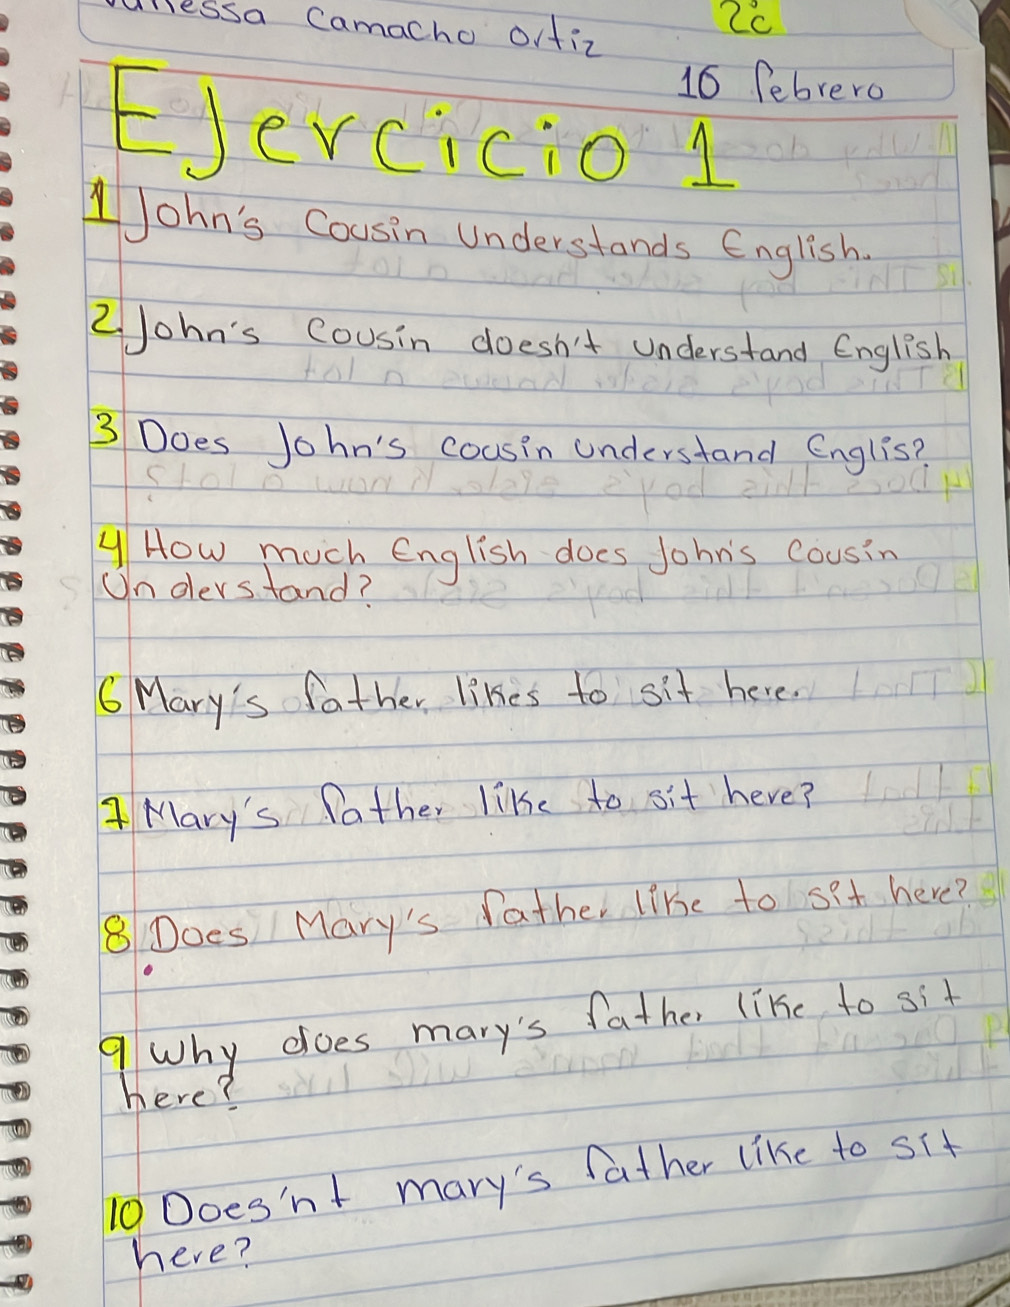 Camacho Ortiz
2c
16 febrero
EJercicio 1
1 John's Cousin Understands English.
2 John's cousin doesn't understand English
3 Does John's cousin understand Englis?
4 How much English does John's cousin
Understand?
6 Mary's father likes to sit here.
7 Mary's father like to sit here?
8 Does Mary's father like to sit here?
9 Why does mary's father like to sit
here?
10 Does'nt mary's father like to sit
here?